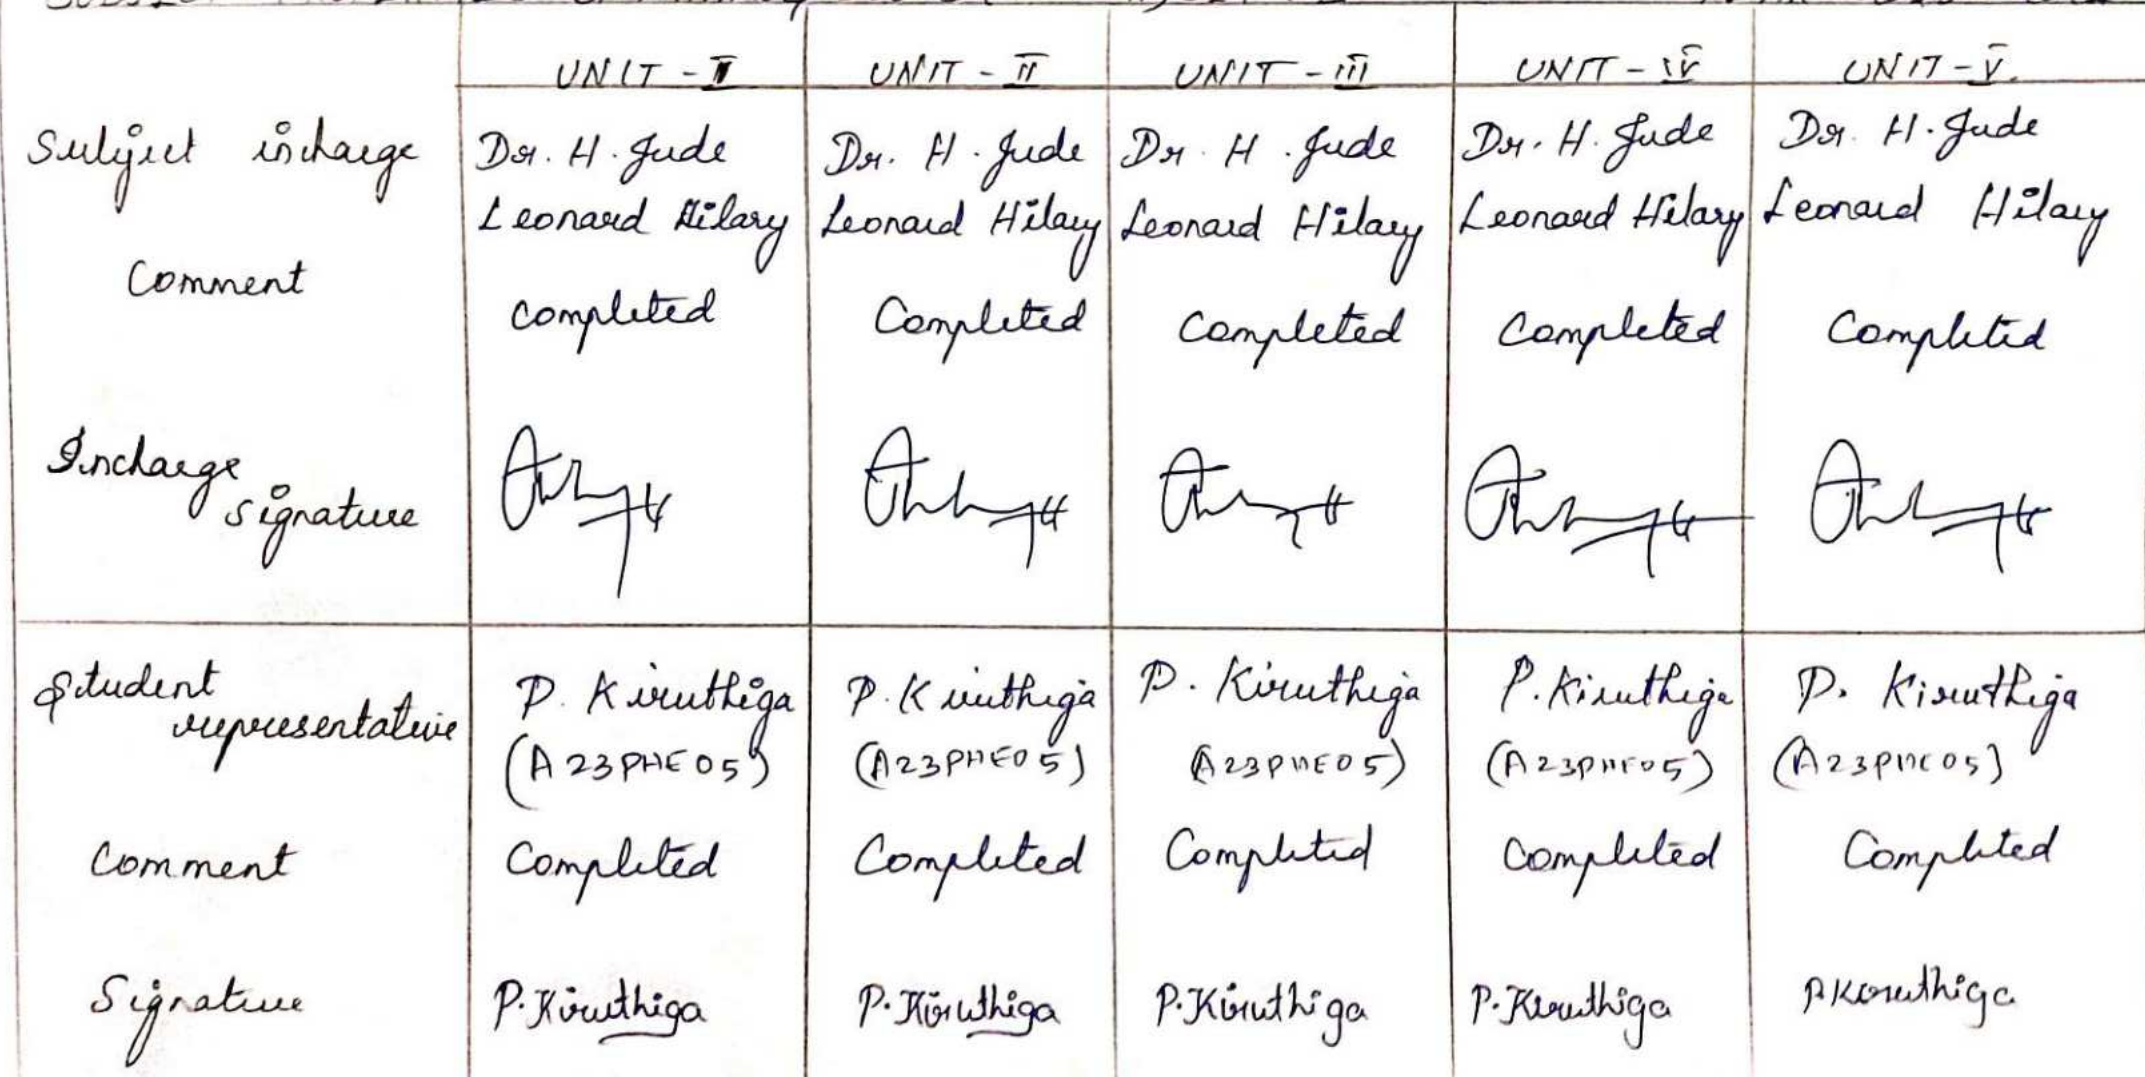 UNIT - II UNIT - II UNIT - III UNIT - IV UNIT - V.
Subject incharge Dr. H. Jude Dr. H. Jude Dr. H. Jude Dr. H. Jude Dr. H. Jude
Leonard Hilary Leonard Hilary Leonard Hilary Leonard Hilary Leonard Hilary
Comment
Completed Completed Completed Completed Completed
Incharge
signature
Student
representative P. Kiruthiga P. Kiruthiga P. Kiruthiga P. Kiruthiga P. Kiruthiga
(A23PHE05) (A23PHE05) (A23PHE05) (A23PHE05) (A23PHE05)
Comment Completed Completed Completed Completed Completed
Signature P. Kiruthiga P. Kiruthiga P. Kiruthiga P. Kiruthiga P. Kiruthiga